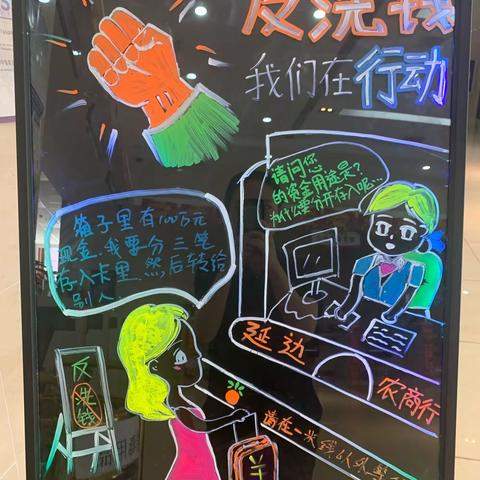 反洗钱
我们在行动
请问您
的资金用途是?
为什么要分开存入呢…
箱子里有100万元
现金,我要分三笔
存入卡里,然后转给
别人
延边
农商行
反
洗钱
请在一米线以外等
¥